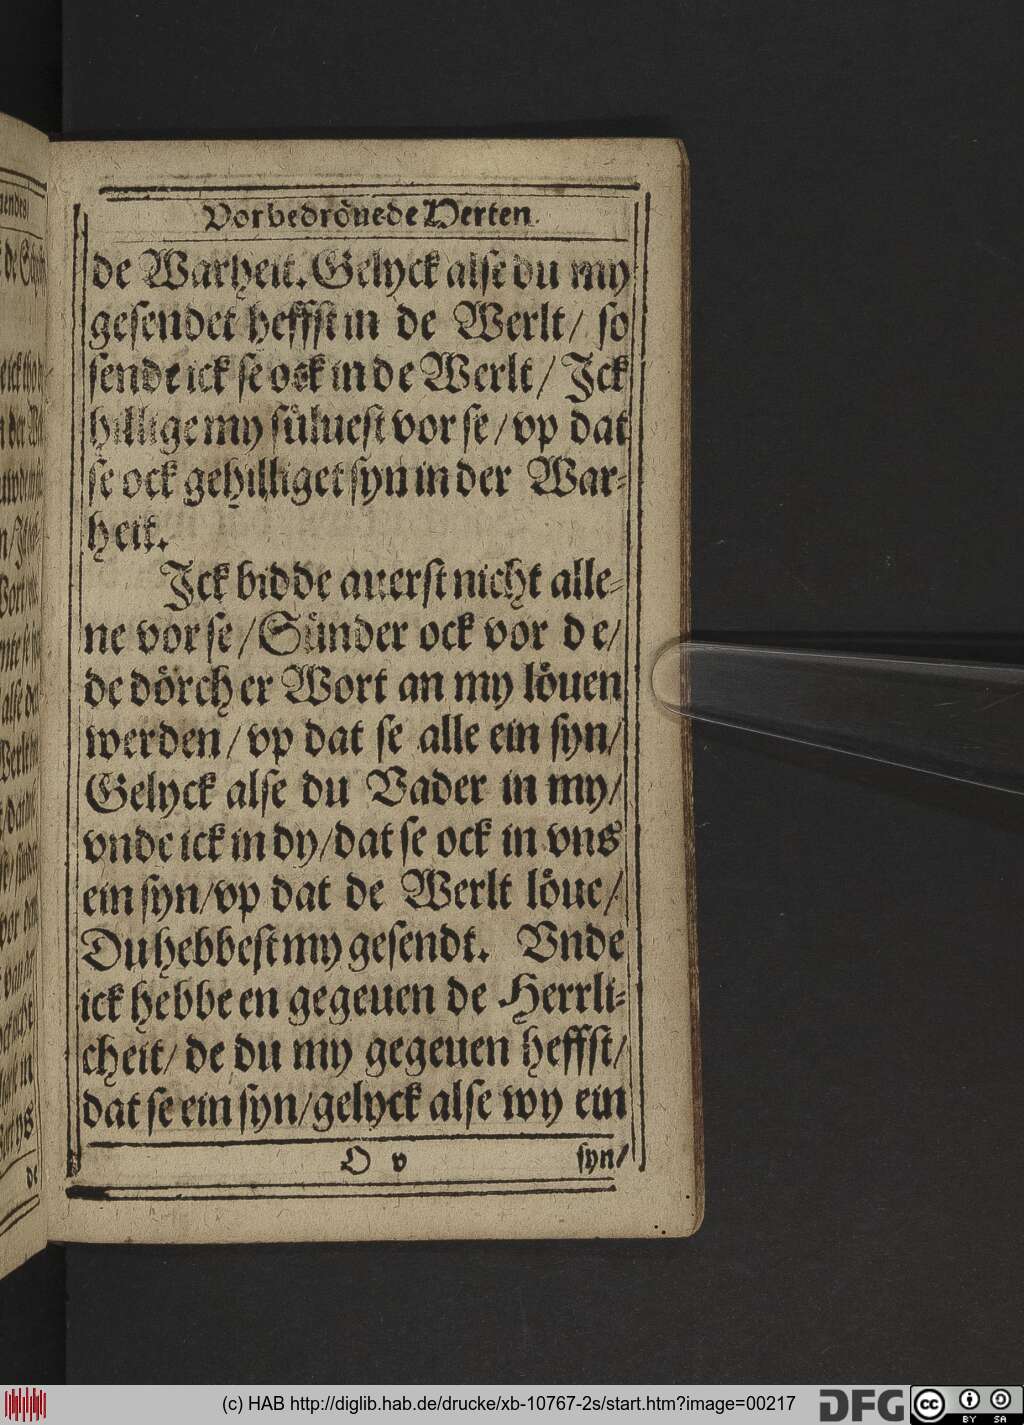 Vorbedröuede Herten.
de Warheit. Gelyck alse du my
gesendet heffst in de Werlt / so
sende ick se ock in de Werlt / Jck
hillige my süluest vor se / vp dat
se ock gehilliget syn in der War-
heit.
Jck bidde auerst nicht alle-
ne vor se / Sünder ock vor de /
de dörch er Wort an my löuen
werden / vp dat se alle ein syn /
Gelyck alse du Vader in my /
vnde ick in dy / dat se ock in vns
ein syn / vp dat de Werlt löue /
Du hebbest my gesendt. Vnde
ick hebbe en gegeuen de Herrli-
cheit / de du my gegeuen heffst /
dat se ein syn / gelyck alse wy ein
O v
syn /
(c) HAB http://diglib.hab.de/drucke/xb-10767-2s/start.htm?image=00217
DFG
cc BY SA